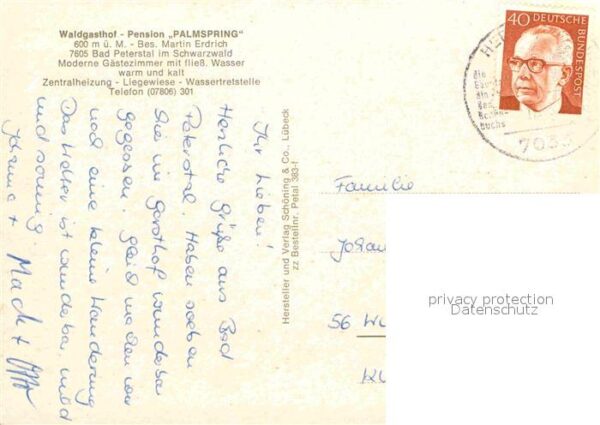 Waldgasthof - Pension „PALMSPRING"
600 m ü. M. - Bes. Martin Erdrich
7605 Bad Peterstal im Schwarzwald
Moderne Gästezimmer mit fließ. Wasser
warm und kalt
Zentralheizung - Liegewiese - Wassertretstelle
Telefon (07806) 301
Ihr Lieben!
Herzliche Grüße aus Bad
Peterstal. Haben soeben
hier im Gasthof wunderbar
gegessen. Gleich machen wir
noch eine kleine Wanderung.
Das Wetter ist wunderbar, mild
und sonnig
Hersteller und Verlag Schöning & Co., Lübeck
zz Bestellnr. Petal 383-f
40 DEUTSCHE
BUNDESPOST
703
Familie
56 Wu
privacy protection
Datenschutz